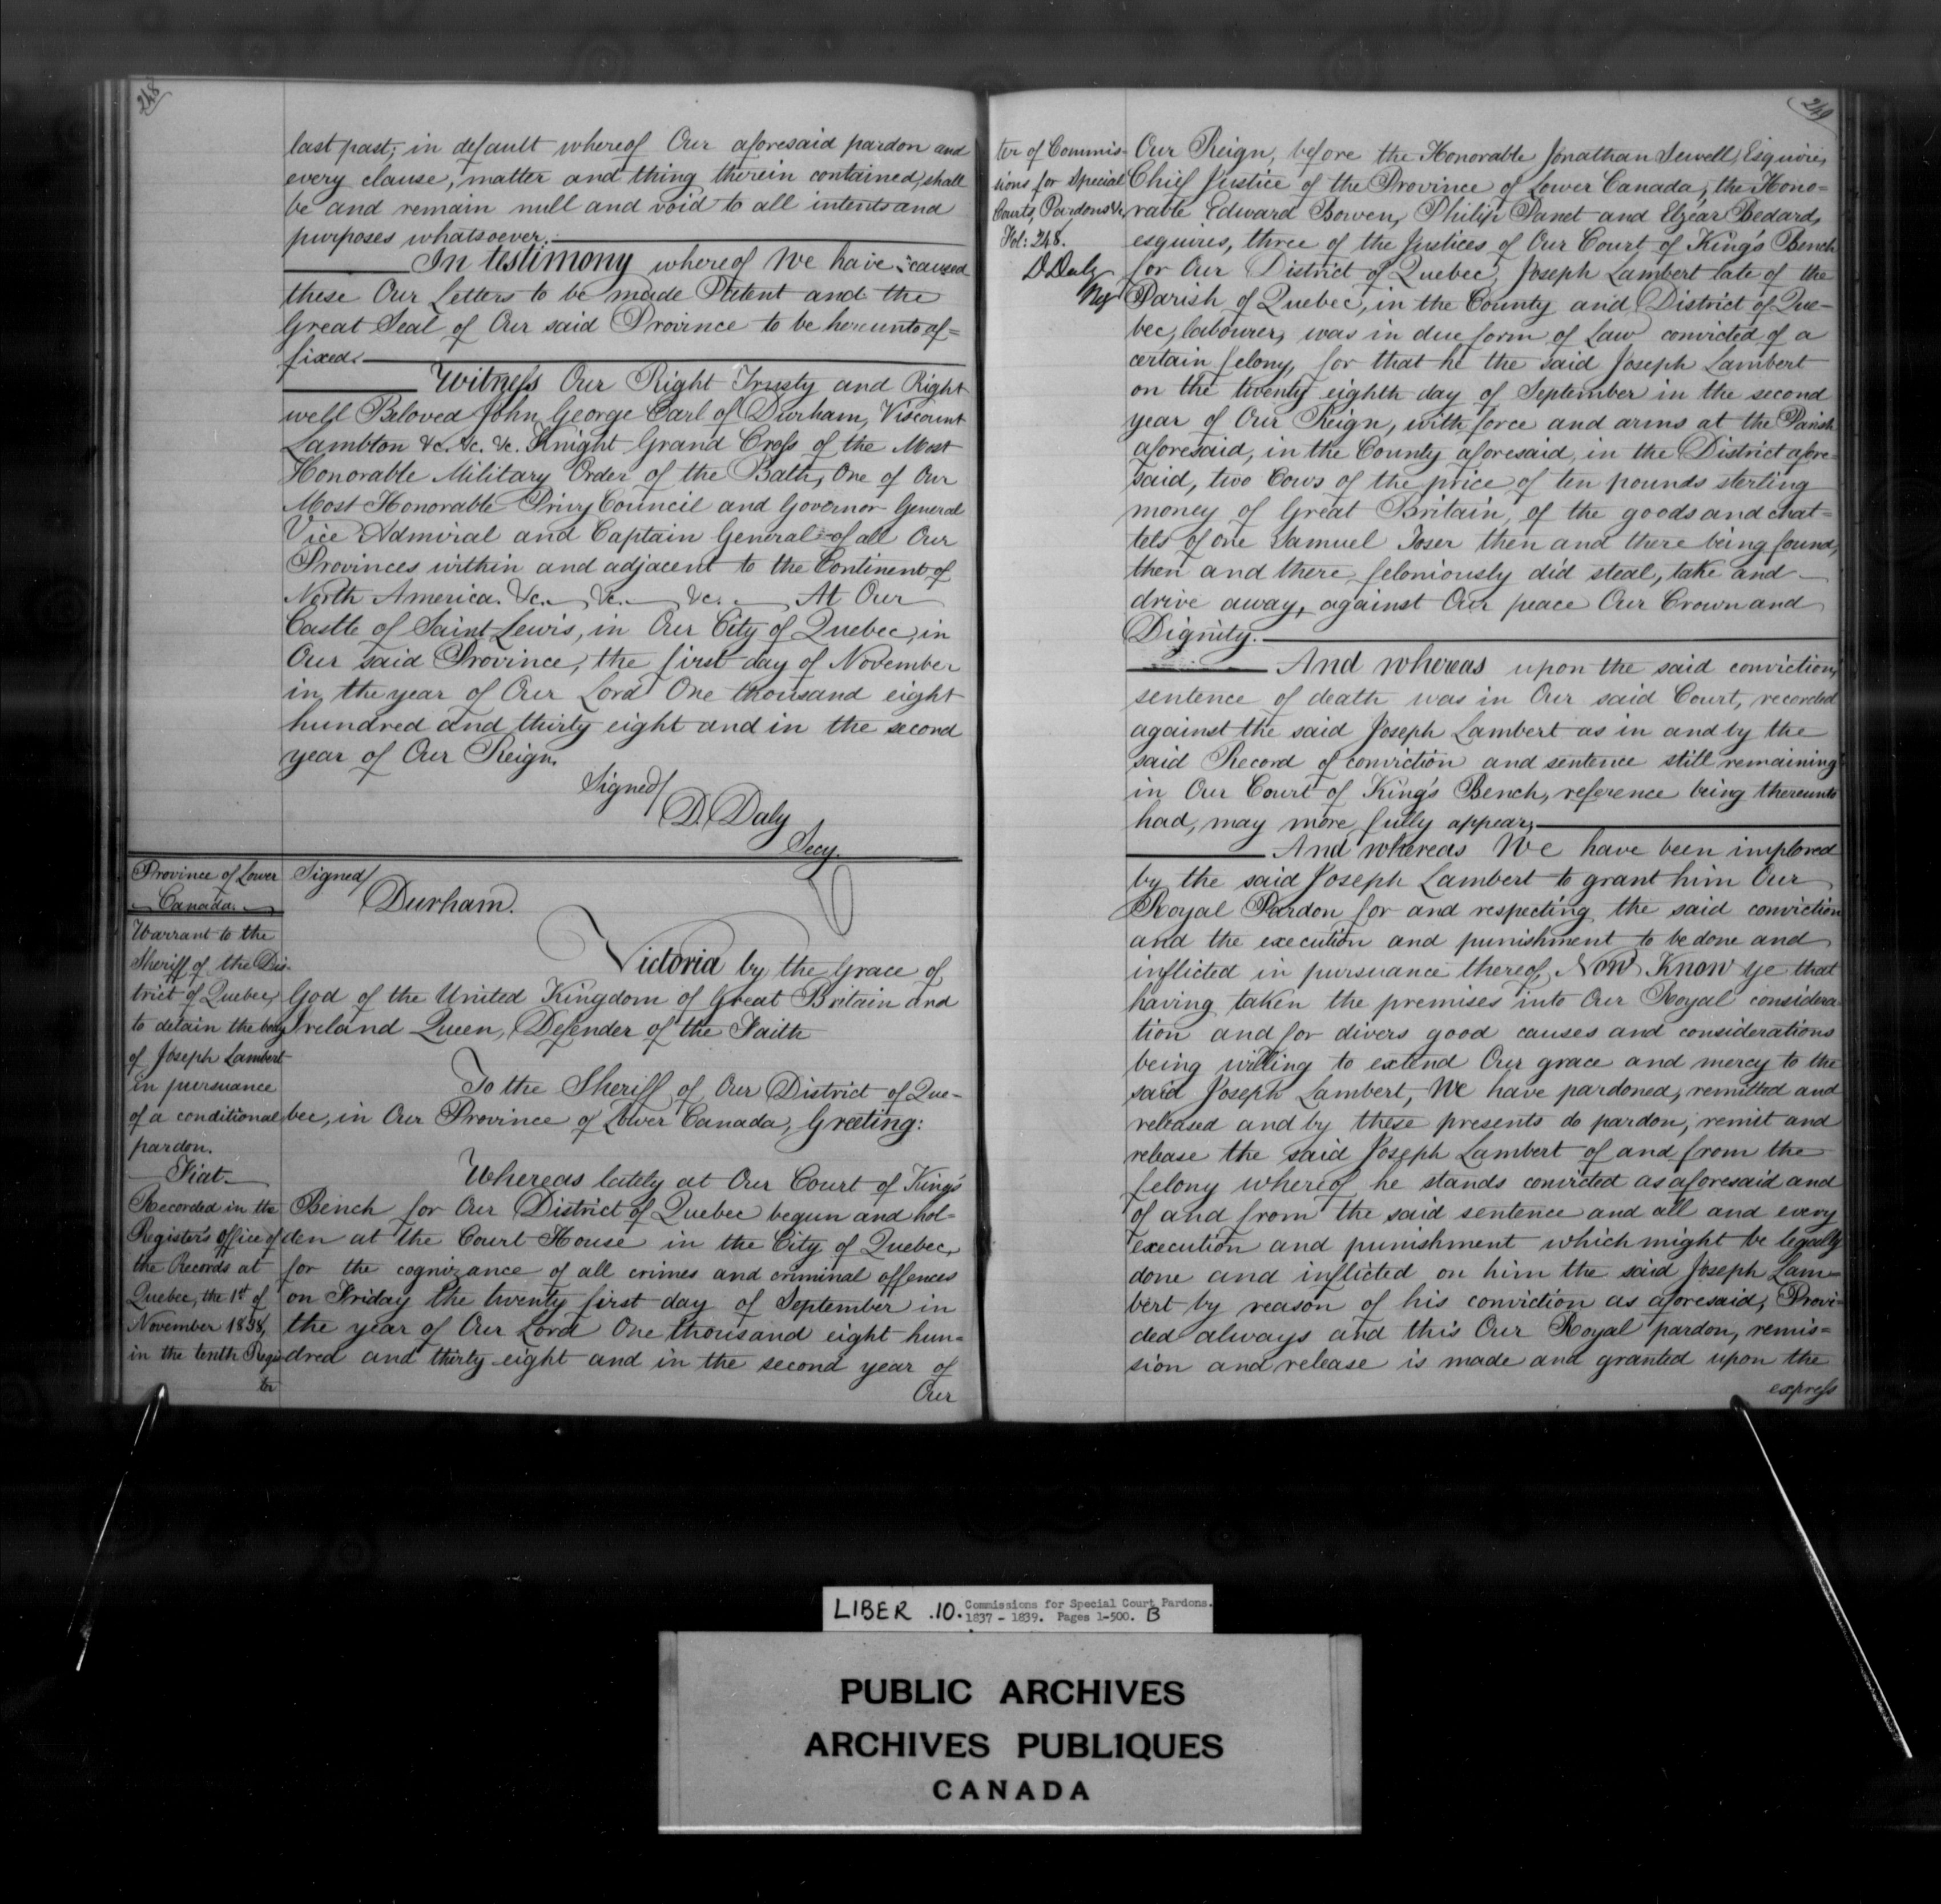 248
last past; in default whereof Our aforesaid pardon and
every clause, matter and thing therein contained, shall
be and remain null and void to all intents and
purposes whatsoever.
In testimony whereof We have caused
these Our Letters to be made Patent and the
Great Seal of Our said Province to be hereunto af=
fixed.
Witness Our Right Trusty and Right
well Beloved John George Earl of Durham, Viscount
Lambton &c. &c. &c. Knight Grand Cross of the Most
Honorable Military Order of the Bath, One of Our
Most Honorable Privy Council and Governor General
Vice Admiral and Captain General of all Our
Provinces within and adjacent to the Continent of
North America. &c. &c. &c. At Our
Castle of Saint Lewis, in Our City of Quebec, in
Our said Province, the first day of November
in the year of Our Lord One thousand eight
hundred and thirty eight and in the second
year of Our Reign.
Signed/
D. Daly
Secy.
Province of Lower
Canada.
Warrant to the
Sheriff of the Dis-
trict of Quebec,
to detain the body
of Joseph Lambert
in pursuance
of a conditional
pardon.
Fiat.
Recorded in the
Register's Office of
the Records at
Quebec, the 1st of
November 1838,
in the tenth Regis
ter
Signed/
Durham.
Victoria by the Grace of
God of the United Kingdom of Great Britain and
Ireland Queen, Defender of the Faith
To the Sheriff of Our District of Que-
bec, in Our Province of Lower Canada, Greeting:
Whereas lately at Our Court of King's
Bench for Our District of Quebec begun and hol-
den at the Court House in the City of Quebec,
for the cognizance of all crimes and criminal offences
on Friday the twenty first day of September in
the year of Our Lord One thousand eight hun-
dred and thirty eight and in the second year of
Our
249
ter of Commis-
sions for Special
Courts, Pardons &c
Fol: 248.
D Daly
Reg
Our Reign, before the Honorable Jonathan Sewell, Esquire,
Chief Justice of the Province of Lower Canada, the Hono=
rable Edward Bowen, Philip Panet and Elzéar Bedard,
esquires, three of the Justices of Our Court of King's Bench
for Our District of Quebec, Joseph Lambert late of the
Parish of Quebec, in the County and District of Que-
bec, labourer, was in due form of Law convicted of a
certain felony, for that he the said Joseph Lambert
on the twenty eighth day of September in the second
year of Our Reign, with force and arms at the Parish
aforesaid, in the County aforesaid, in the District afore-
said, two Cows of the price of ten pounds sterling
money of Great Britain, of the goods and chat=
tels of one Samuel Toser then and there being found,
then and there feloniously did steal, take and
drive away, against Our peace Our Crown and
Dignity.
And whereas upon the said conviction,
sentence of death was in Our said Court, recorded
against the said Joseph Lambert as in and by the
said Record of conviction and sentence still remaining
in Our Court of King's Bench, reference being thereunto
had, may more fully appear,
And whereas We have been implored
by the said Joseph Lambert to grant him Our
Royal Pardon for and respecting the said conviction
and the execution and punishment to be done and
inflicted in pursuance thereof, Now Know Ye that
having taken the premises into Our Royal considera-
tion and for divers good causes and considerations
being willing to extend Our grace and mercy to the
said Joseph Lambert, We have pardoned, remitted and
released and by these presents do pardon, remit and
release the said Joseph Lambert of and from the
felony whereof he stands convicted as aforesaid and
of and from the said sentence and all and every
execution and punishment which might be legally
done and inflicted on him the said Joseph Lam=
bert by reason of his conviction as aforesaid, Provi-
ded always and this Our Royal pardon, remis=
sion and release is made and granted upon the
express
LIBER .10. Commissions for Special Court Pardons.
1837 - 1839. Pages 1-500. B
PUBLIC ARCHIVES
ARCHIVES PUBLIQUES
CANADA